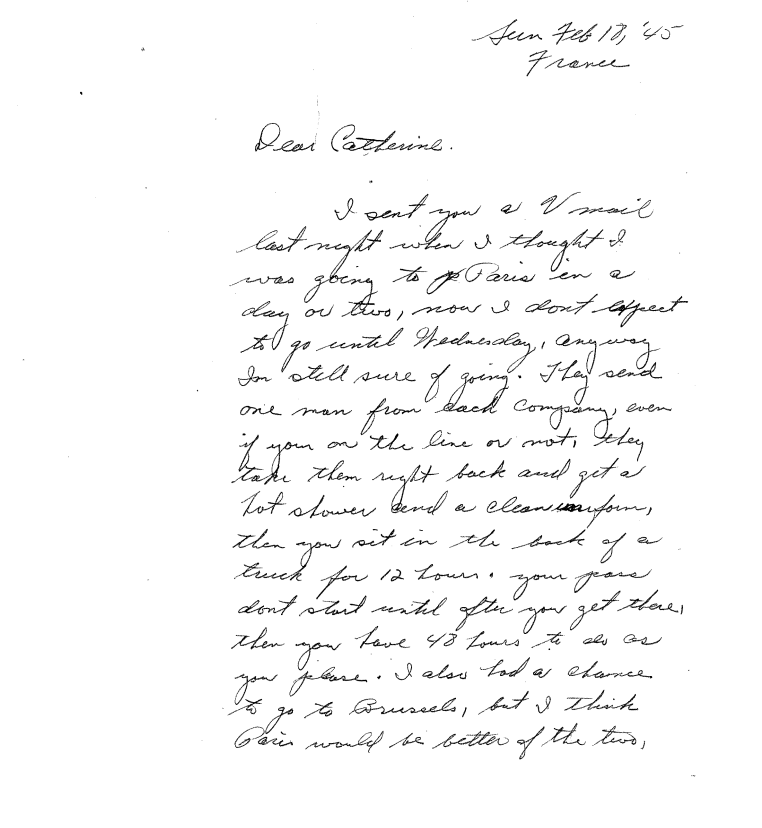 Sun Feb 18, '45
France
Dear Catherine.
I sent you a V mail
last night when I thought I
was going to Paris in a
day or two, now I dont expect
to go until Wednesday, anyway
Im still sure of going. They send
one man from each company, even
if your on the line or not, they
take them right back and get a
hot shower and a clean uniform,
then you sit in the back of a
truck for 12 hours. your pass
dont start until after you get there,
then you have 48 hours to do as
you please. I also had a chance
to go to Brussels, but I think
Paris would be better of the two,